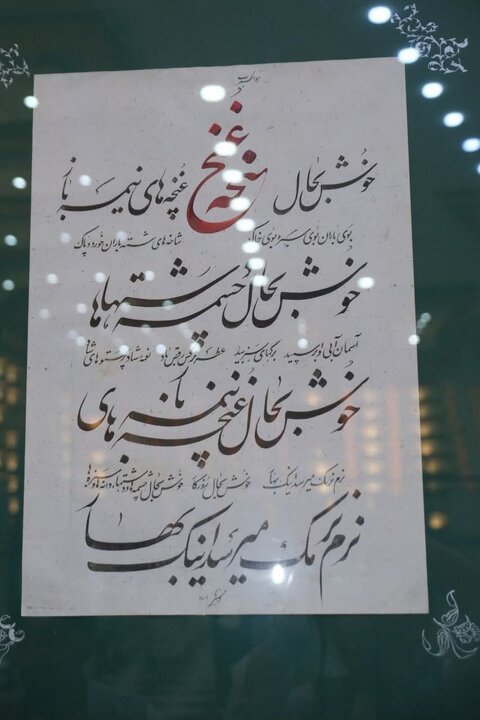 خوش بحال غنچه غنچه های نیمه باز
بوی باران بوی سبزه بوی خاک شاخه های شسته باران خورده پاک
خوش بحال چشمه ها و دشتها
آسمان آبی و ابر سپید برگهای سبز بید عطر نرگس رقص باد نغمه پرستوهای شاد
خوش بحال غنچه های نیمه باز
نرم نرمک میرسد اینک بهار خوش بحال روزگار خوش بحال چشمه ها و دشتها و دانه ها و سبزه ها
نرم نرمک میرسد اینک بهار